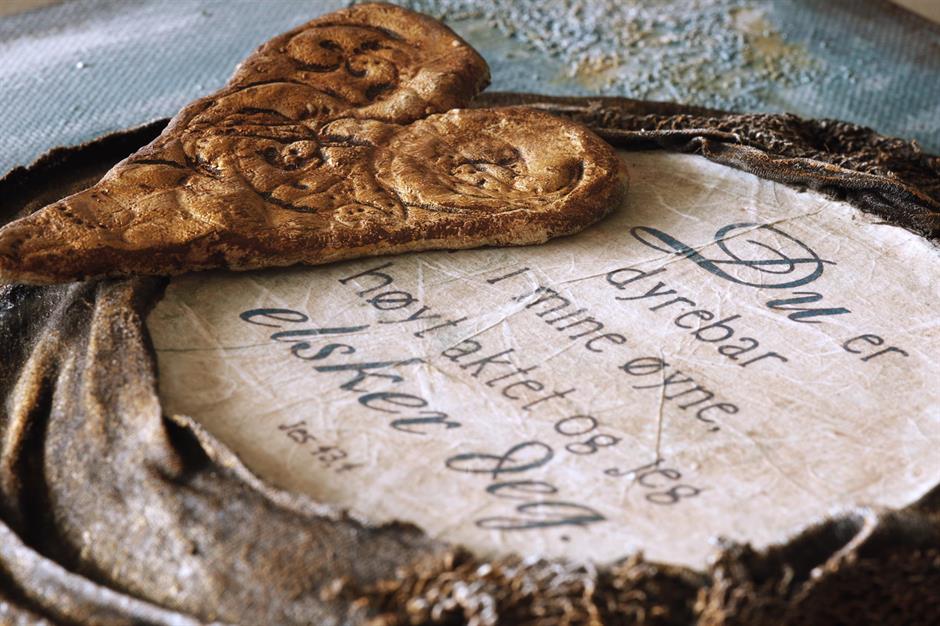 Du er
dyrebar
i mine øyne,
høyt aktet og jeg
elsker deg.
Jes 43,4